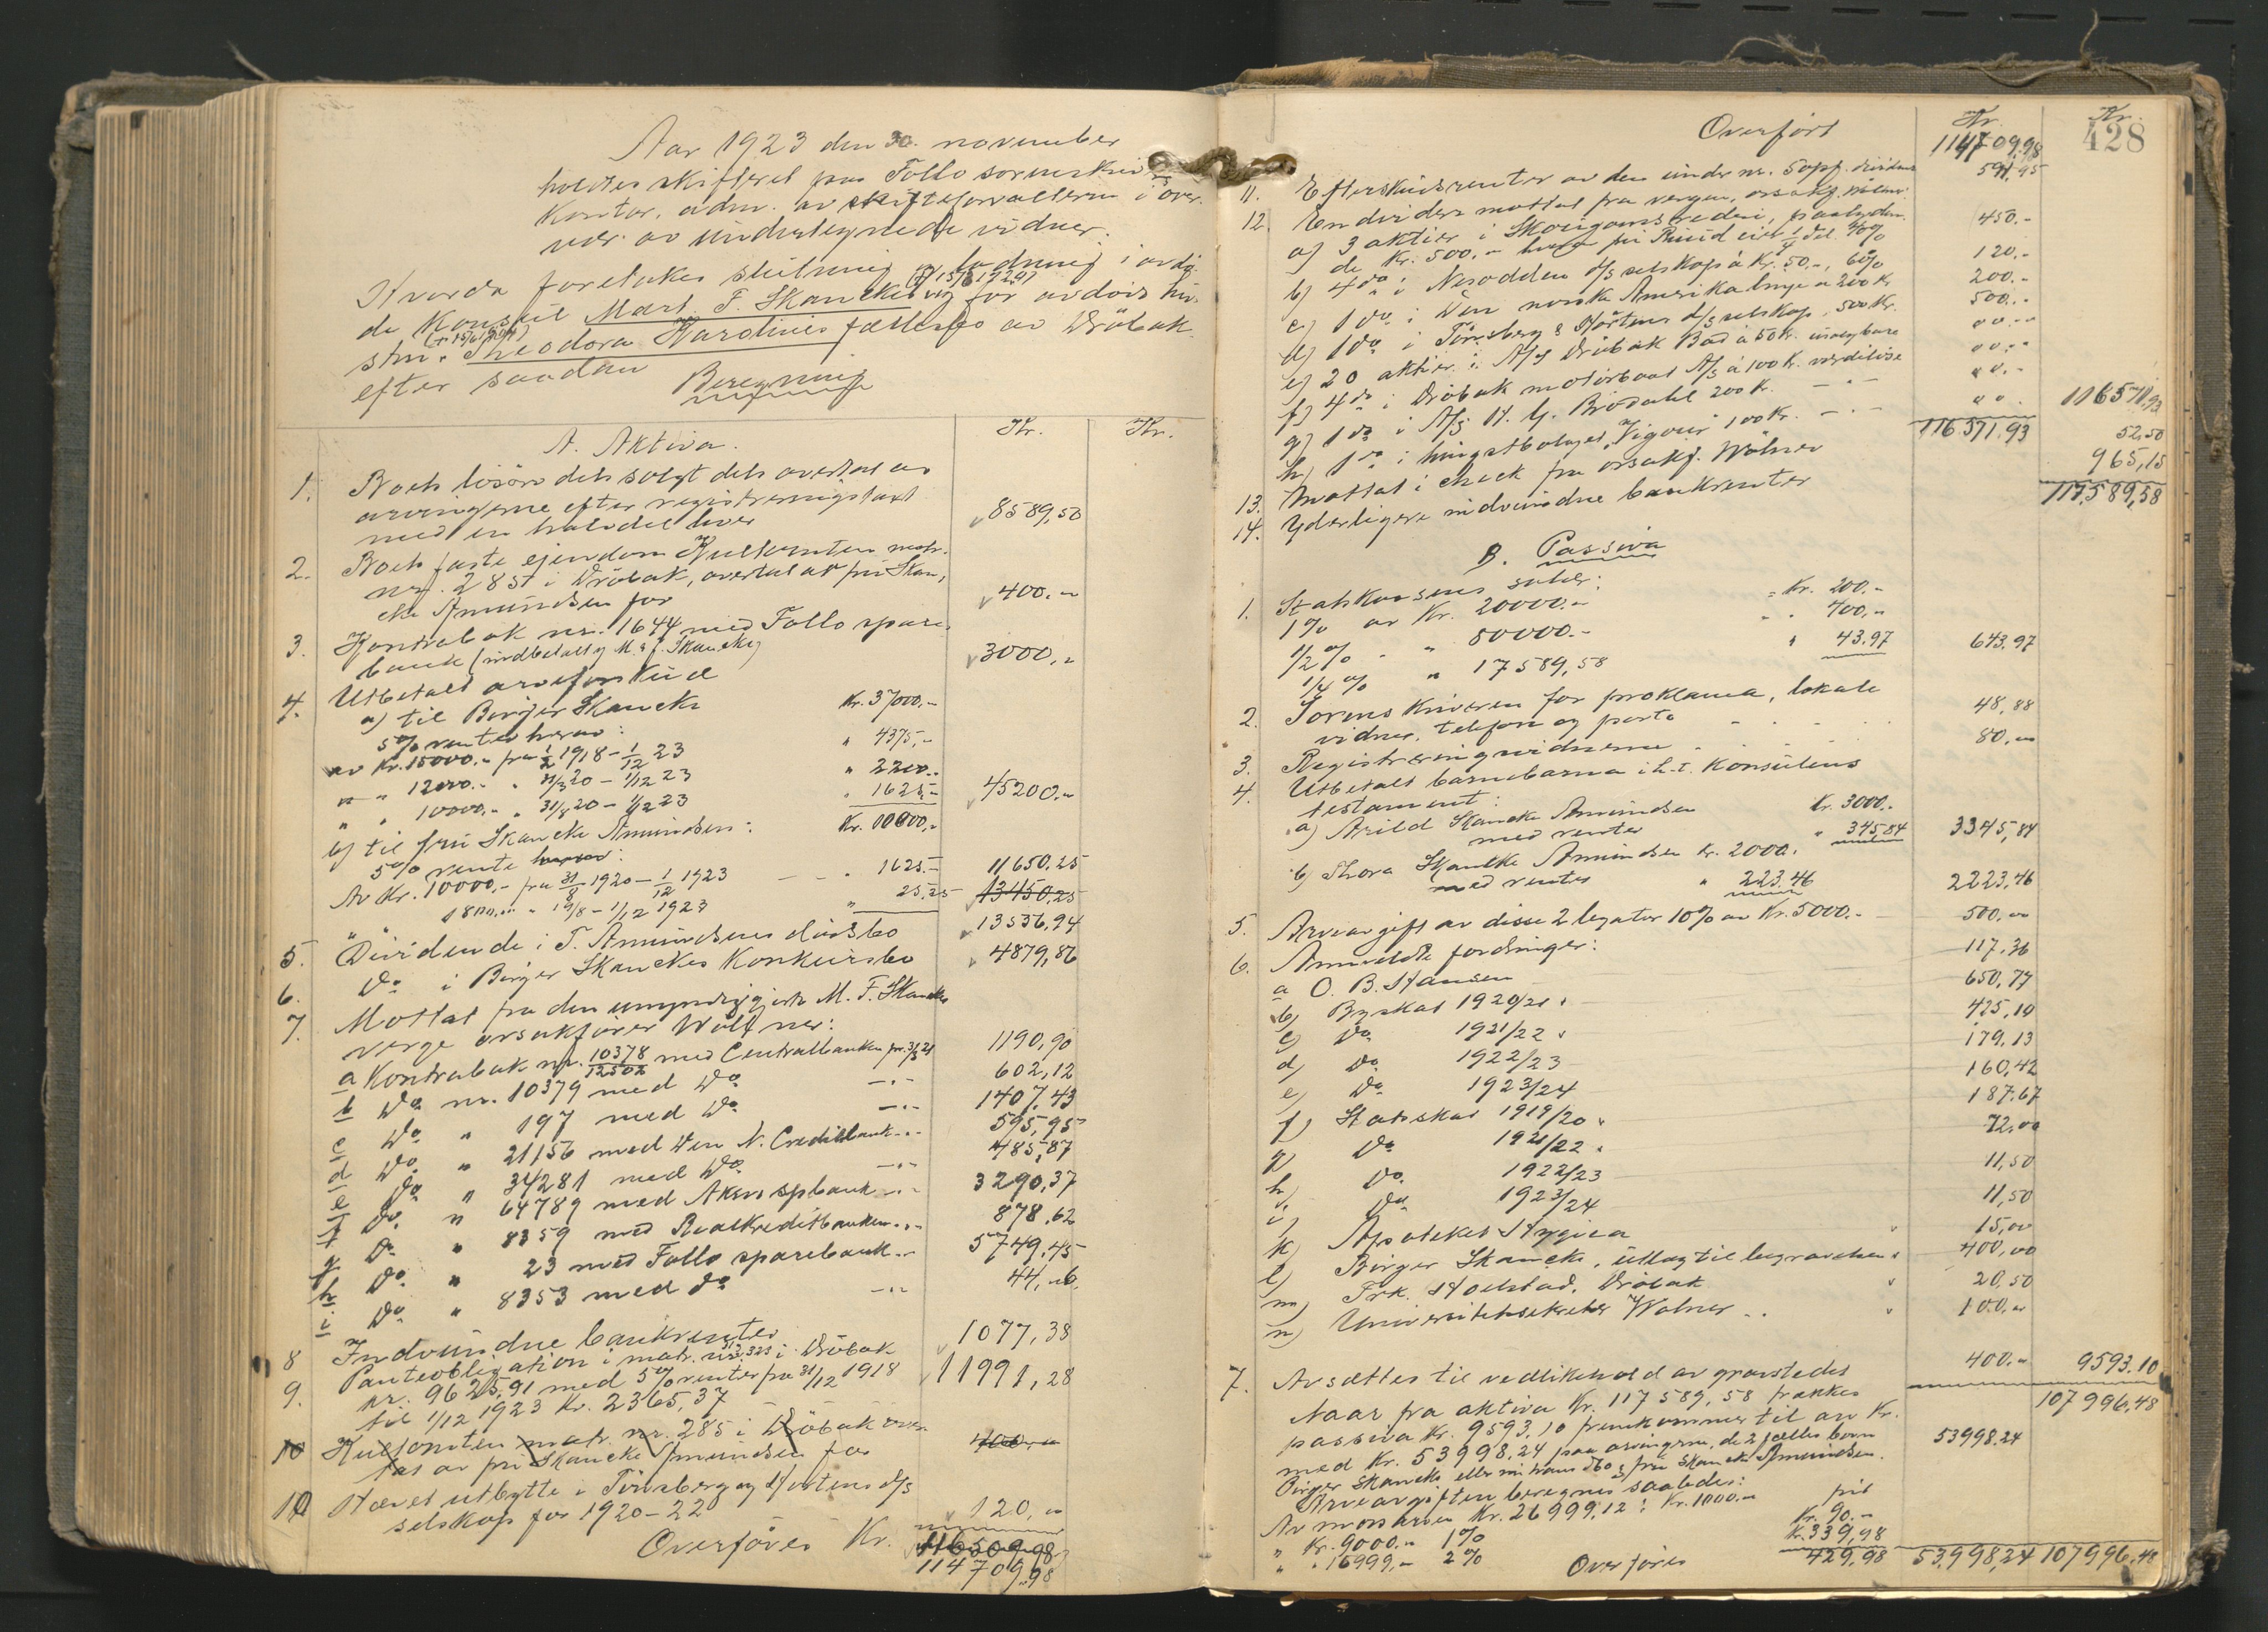 Aar 1923 den 30. november
holdtes skifteret paa Follo sorenskrivers
kontor, adm. av skifteforvalteren i over-
vær av undertegnede vidner.
Hvorda foretokes slutning og lodning i avdø-
de Konsul Mart. F. Skanckes og for avdøde hu-
stru Theodora Karolines fællesbo av Drøbak
efter saadan
Beregning
A. Aktiva.
Kr. Kr.
1. Boets løsøre dels solgt dels overtat av
arvingerne efter registreringstaxt
med en halvdel hver 8589,50
2. Boets faste eiendom Kulltomten matr.
nr. 285 i Drøbak, overtat av fru Skan-
cke Amundsen for 400.-
3. Kontrabok nr. 1644 med Follo spare-
bank (indbetalt av M. F. Skancke) 3000,-
4. Utbetalt arveforskud
a) til Birger Skancke Kr. 37000.-
5% renter herav:
av Kr. 15000.- fra 1/2 1918 - 1/12 23 " 4375,-
" " 12000.- " 31/3 20 - 1/12 23 " 2200.-
" " 10000.- " 31/8 20 - 1/12 23 " 1625,- 45200.-
b) til fru Skancke Amundsen: Kr. 10000,-
5% rente herav:
Av Kr. 10000.- fra 31/8 1920 - 1/12 1923 " 1625.- 11650.25
1800.- " 19/8 - 1/12 1923 " 25,25 13450.25
5. Dividende i T. Amundsens dødsbo 13536,94
6. Do i Birger Skanckes Konkursbo 4879,86
7. Mottat fra den umyndiggjorte M. F. Skanckes
verge orsakfører Wølner:
a Kontrabok nr. 10378/12502 med Centralbanken pr. 31/3 21 1190,90
b Do nr. 10379 med Do 602,12
c Do " 197 med Do 1407,43
d Do " 21156 med Den N. Creditbank 595,95
e Do " 34281 med Do 485,87
f Do " 64789 med Akers spbank 3290,37
g Do " 8359 med Realkreditbanken 878,62
h Do " 23 med Follo sparebank 5749,45
i Do " 8353 med Do 44,06
8 Indvundne bankrenter 1077,38
9. Panteobligation i matr. nr. 323 i Drøbak
kr. 9625,91 med 5% renter fra 31/12 1918
til 1/12 1923 Kr. 2365,37 11991,28
10 Kulltomten matr. nr. 285 i Drøbak over-
tat av fru Skancke Amundsen for 400,-
10 Hævet utbytte i Tønsberg og Hortens d/s
selskap for 1920-22 120,-
Overføres Kr. 116509.98
114709,98
428
Kr. Kr.
Overført 114709,98
11. Efterskudsrenter av den under nr. 5 opf. dividende 591,95
12. Endvidere mottat fra vergen, orsakf. Wølner:
a) 3 aktier i Skougaards rederi, paalydende
Kr. 500,- hvorav fru Ruud eier 1/4 del. 40% 450.-
b) 4 do i Nesodden d/s selskap à Kr. 50.-, 60% 120.-
c) 1 do i Den norske Amerikalinje à 200 Kr 200.-
d) 1 do i Tønsberg & Hortens d/s selskap, 500 Kr. 500.-
e) 20 aktier i A/S Drøbak Bad à 50 Kr. usælgbare
f) 4 do i Drøbak motorbaat A/S à 100 Kr. værdiløse
g) 1 do i A/S H. G. Brodahl 200 Kr.
h) 1 do i hingstbolaget "Vigour" 100 Kr. 116571.93 116571,93
13. Mottat i check fra orsakf. Wølner 52,50
14. Yderligere indvundne bankrenter 965,15
117,589,58
B. Passiva
1. Statskassens sukc:
1% av Kr. 20000.- = Kr. 200.-
1/2% " " 80000.- " 400,-
1/4% " 17589,58 " 43.97 643,97
2. Sorenskriveren for proklama, lokale
vidner, telefon og porto 48,88
3. Registreringsvidnerne 80,-
4. Utbetalt barnebarna i h.t. Konsulens
testament:
a) Arild Skancke Amundsen Kr. 3000.-
med renter " 345,84 3345,84
b) Thora Skancke Amundsen Kr. 2000.
med renter " 223,46 2223,46
5. Arveavgift av disse 2 legater 10% av Kr. 5000.- 500,00
6. Anmeldte fordringer:
a O. B. Hansen 117,36
b) Byskat 1920/21 650,77
c) Do 1921/22 425,10
d) Do 1922/23 179,13
e) Do 1923/24 160,42
f) Statsskat 1919/20 187,67
g) Do 1921/22 72,00
h) Do 1922/23 11,50
i) Do 1923/24 11,50
k) Apoteket Hygiea 15,00
l) Birger Skancke, utlæg til begravelsen 400,00
m) Frk. Hoelstad, Drøbak 20,50
n) Universitetssekretær Wølner 100,-
7. Avsættes til vedlikehold av gravstedet 400.- 9593.10
107996,48
Naar fra aktiva Kr. 117 589,58 trækkes
passiva Kr. 9593,10 fremkommer til arv Kr.
med Kr. 53998,24 paa arvingerne, de 2 fælles barn 53998.24
Birger Skancke eller nu hans dbo & fru Skancke Amundsen.
Arveavgiften beregnes saaledes:
Av morsarven Kr. 26999,12: Kr. 1000.- fri
" Kr. 9000.- 1% Kr. 90.-
" " 16999,- 2% Kr. 339,98
Overføres 429,98 53,998,24 107996,48